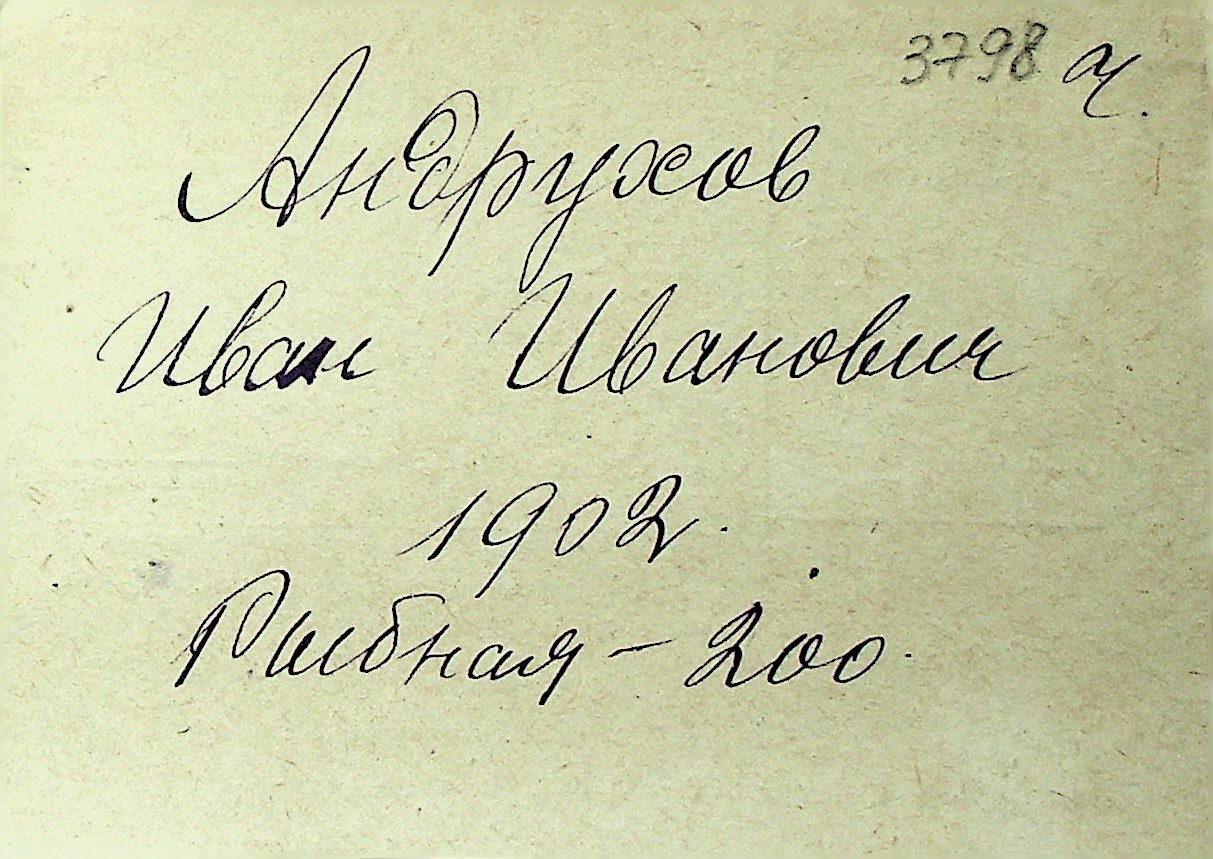 3798 ч.
Андрухов
Иван Иванович
1902.
Рыбная - 200.